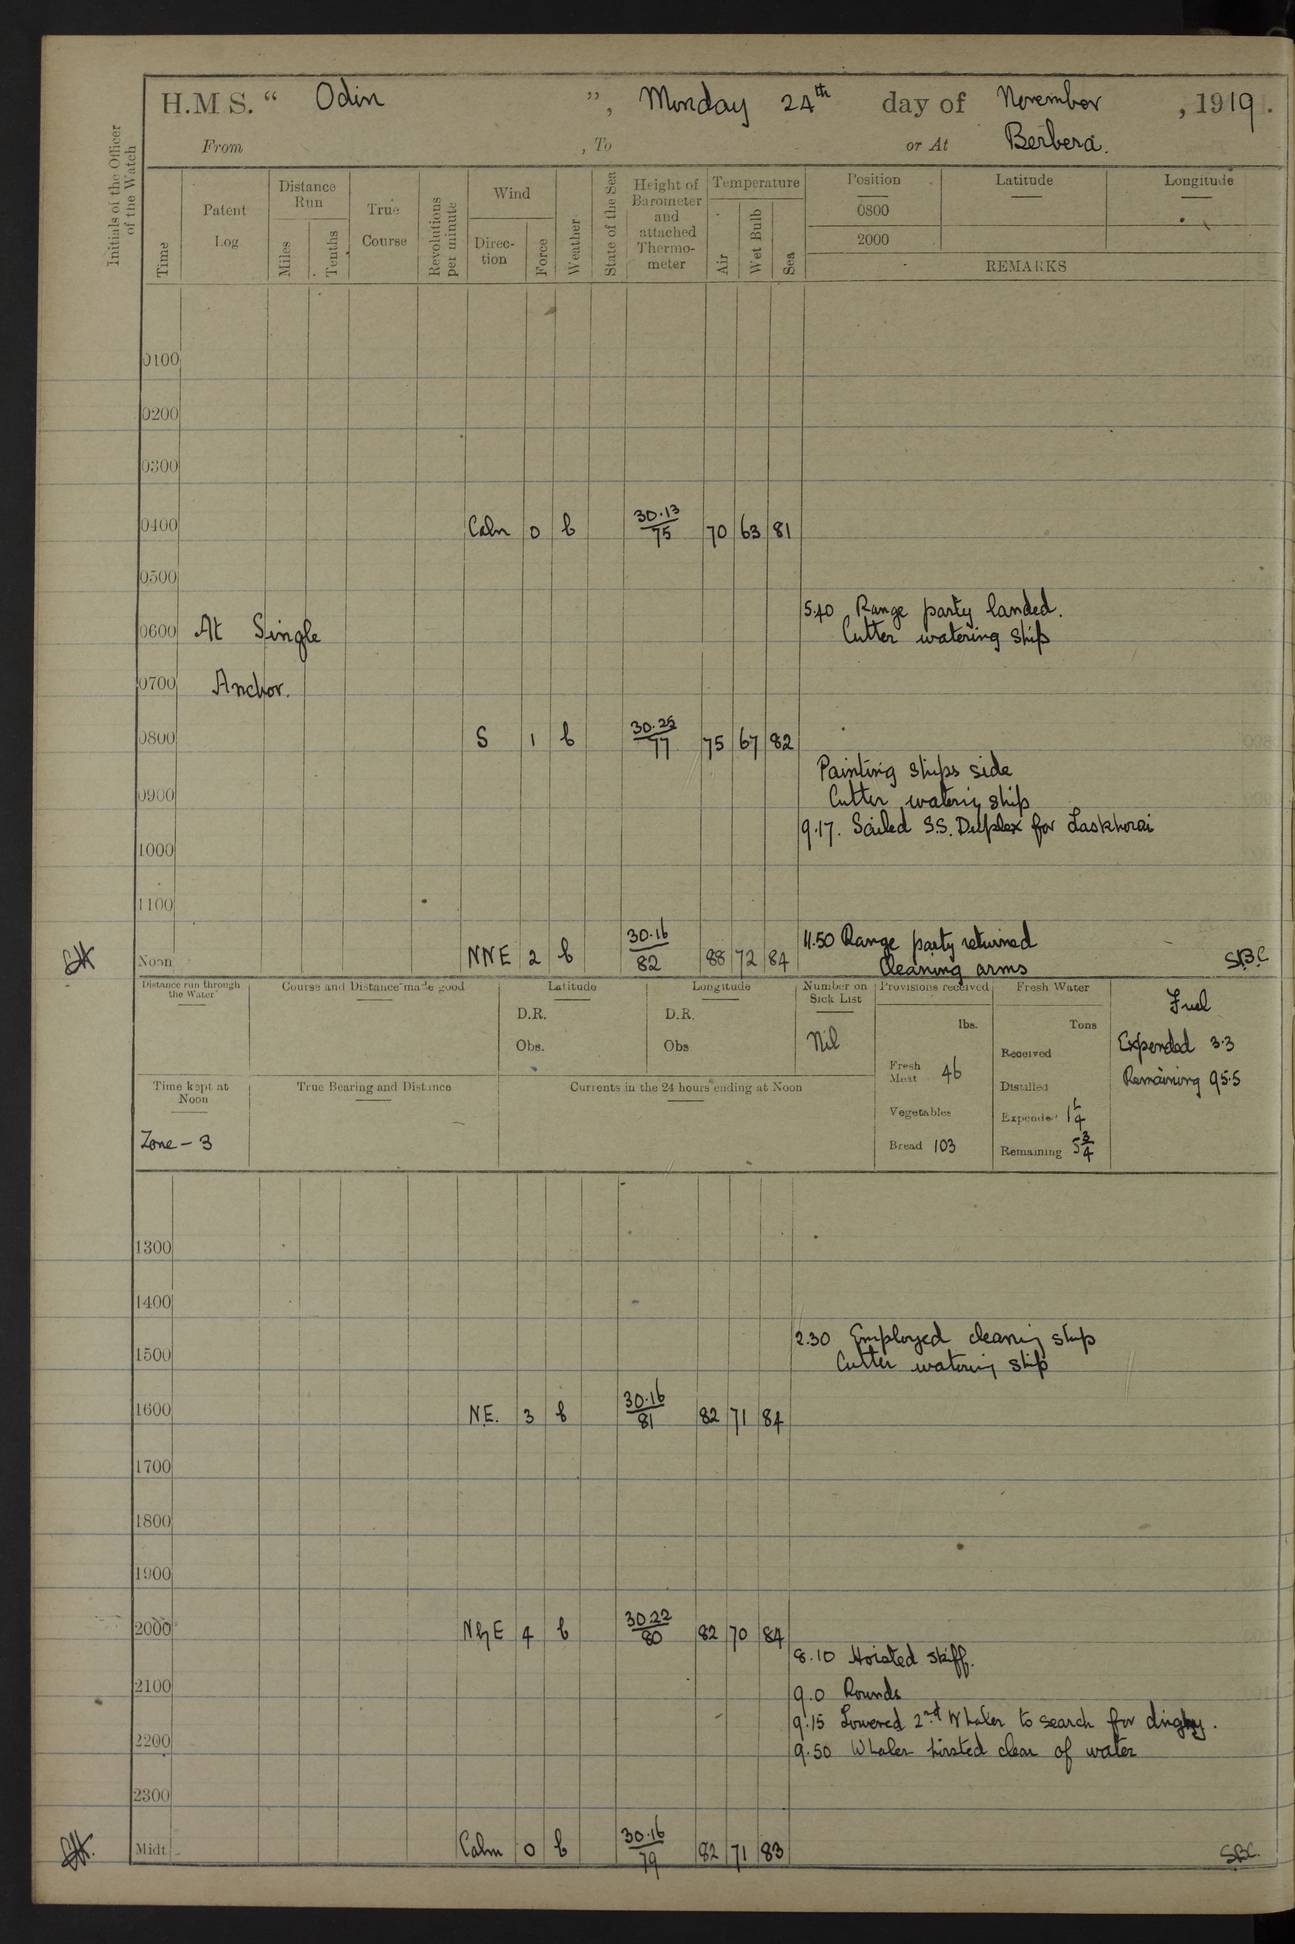 H.M.S. “ Odin ”, Monday 24th day of November, 1919.
From , To or At Berbera.
Initials of the Officer of the Watch
Time
Patent Log
Distance Run
Miles
Tenths
True Course
Revolutions per minute
Wind
Direc-tion
Force
Weather
State of the Sea
Height of Barometer and attached Thermo-meter
Temperature
Air
Wet Bulb
Sea
Position
Latitude
Longitude
0800
2000
REMARKS
0100
0200
0300
0400 Calm 0 b 30.13/75 70 63 81
0500
5.40 Range party landed.
0600 At Single Cutter watering ship
0700 Anchor.
0800 S 1 b 30.25/77 75 67 82
Painting ships side
0900 Cutter watering ship
9.17. Sailed S.S. Duplex for Laskhorai
1000
1100
11.50 Range party returned
Noon NNE 2 b 30.16/82 88 72 84 Cleaning arms SBC
Distance run through the Water
Course and Distance made good
Latitude
D.R.
Obs.
Longitude
D.R.
Obs
Number on Sick List
Nil
Provisions received
lbs.
Fresh Meat 46
Vegetables
Bread 103
Fresh Water
Tons
Received
Distilled
Expended 1 1/4
Remaining 5 3/4
Fuel
Expended 3.3
Remaining 95.5
Time kept at Noon
Zone - 3
True Bearing and Distance
Currents in the 24 hours ending at Noon
1300
1400
2.30 Employed cleaning ship
1500 Cutter watering ship
1600 N.E. 3 b 30.16/81 82 71 84
1700
1800
1900
2000 NbyE 4 b 30.22/80 82 70 84
8.10 Hoisted skiff.
2100 9.0 Rounds
9.15 Lowered 2nd Whaler to search for dinghy.
2200 9.50 Whaler hoisted clear of water
2300
Midt. Calm 0 b 30.16/79 82 71 83 SBC.